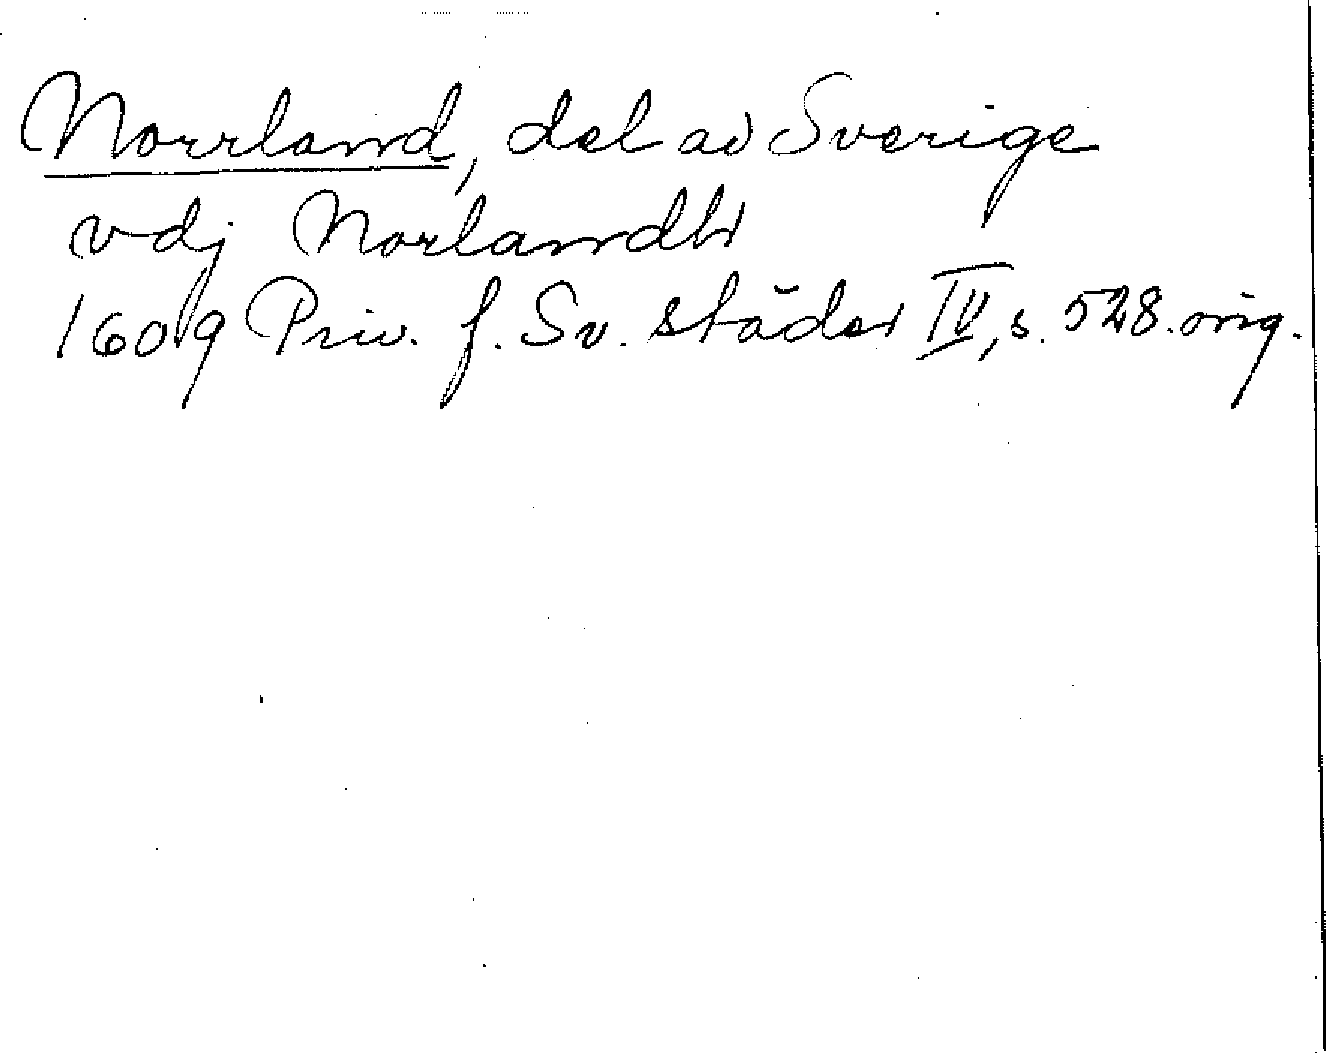 Norrland, del av Sverige
vdj Norlandh
1609 Priv. f. Sv. städer IV, s. 528. orig.